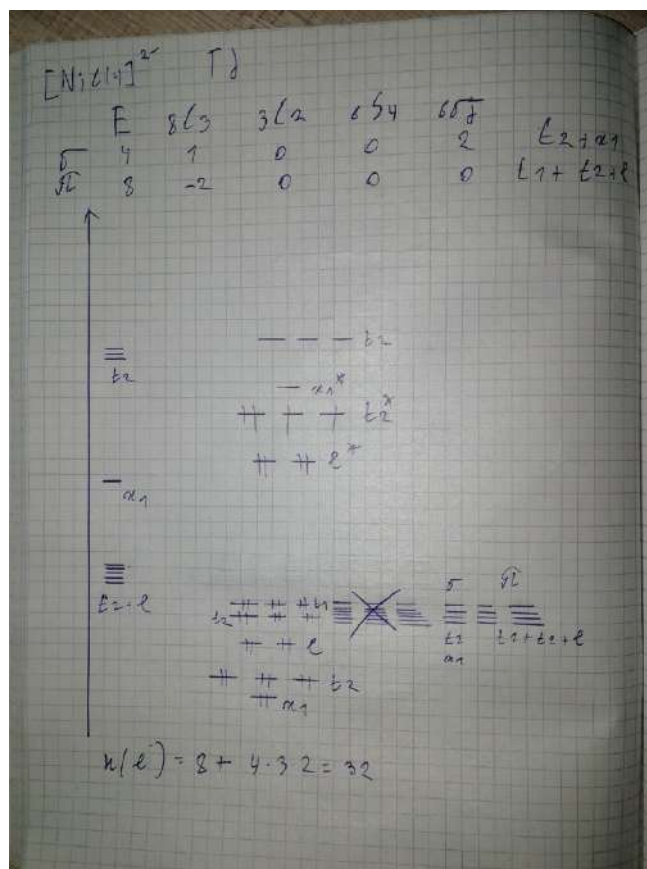 [NiCl4]2- Td
E 8C3 3C2 6S4 6σd
σ 4 1 0 0 2 t2+a1
π 8 -2 0 0 0 t1+t2+e
t2
t2
a1*
t2*
e*
a1
t2+e
σ π
t2
t1
t2 t1+t2+e
a1
e
t2
a1
n(e-) = 8 + 4·3 2 = 32